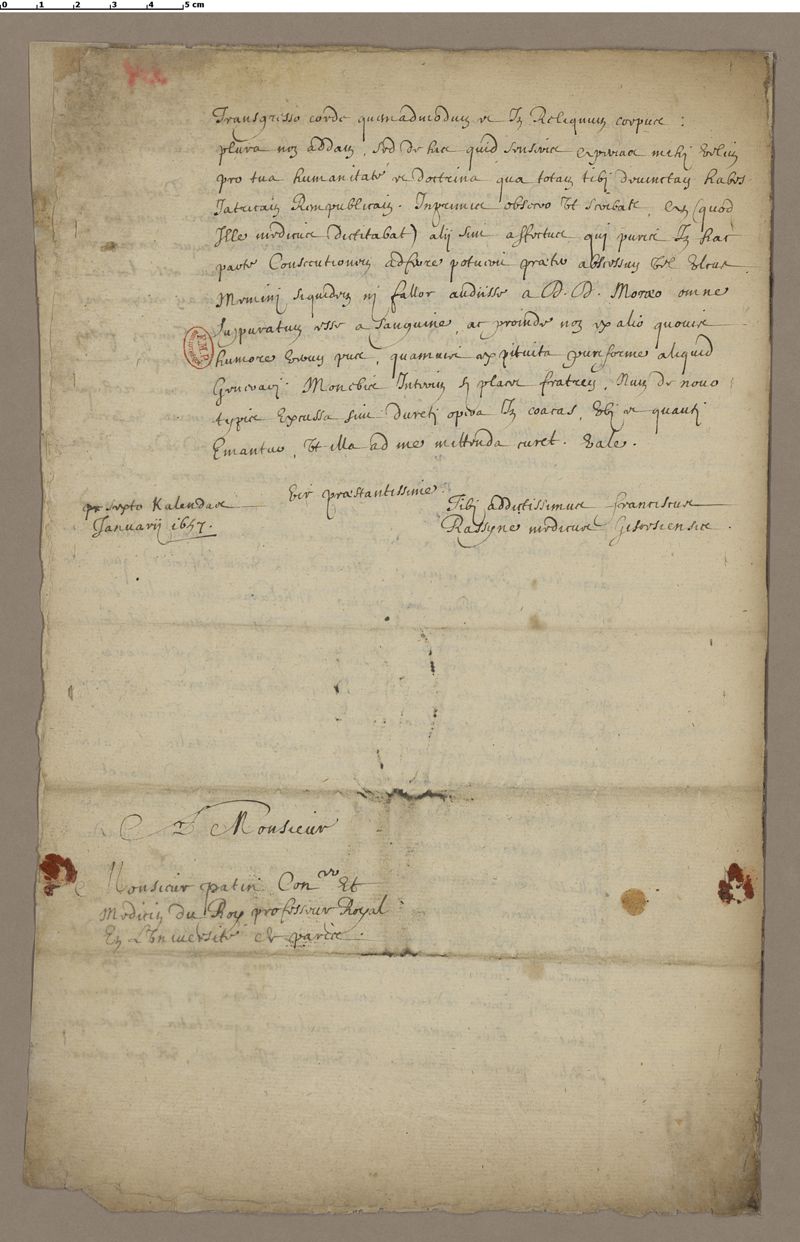 0 1 2 3 4 5 cm
Transgresso corde quemadmodum et In Reliquum corpus :
plura non addam, sed de hac quid senseris exponas mihi velim
pro tua humanitate et doctrina qua totam tibi devinctam habes
Iatricam Rempublicam. Inprimis obsecro ut scribas, (quod
Ille medicus dictitabat) alij sint affectus qui puris In hac
parte Consecutionem adferre potuerint praeter abscessum vel ulcus
Memini siquidem ni fallor audiisse a D. D. Moræo omne
suppuratum esse a sanguine, ac proinde non ex alio quovis
humore verum pus, quamvis ex pituita puriforme aliquid
Generari. Monebis Interim si placet fratrem, Num de novo
typis Excussa sint Dureti opera In coacas, ubi et quanti
Emantur, ut illa ad me mittenda curet. Vale.
vir præstantissime
sexto Kalendas
Januarij 1657.
Tibi addictissimus franciscus
Rassyne medicus Gisorsiensis.
A Monsieur
Monsieur patin Con.er Et
Medicin du Roy professeur Royal
En L'Université de paris.